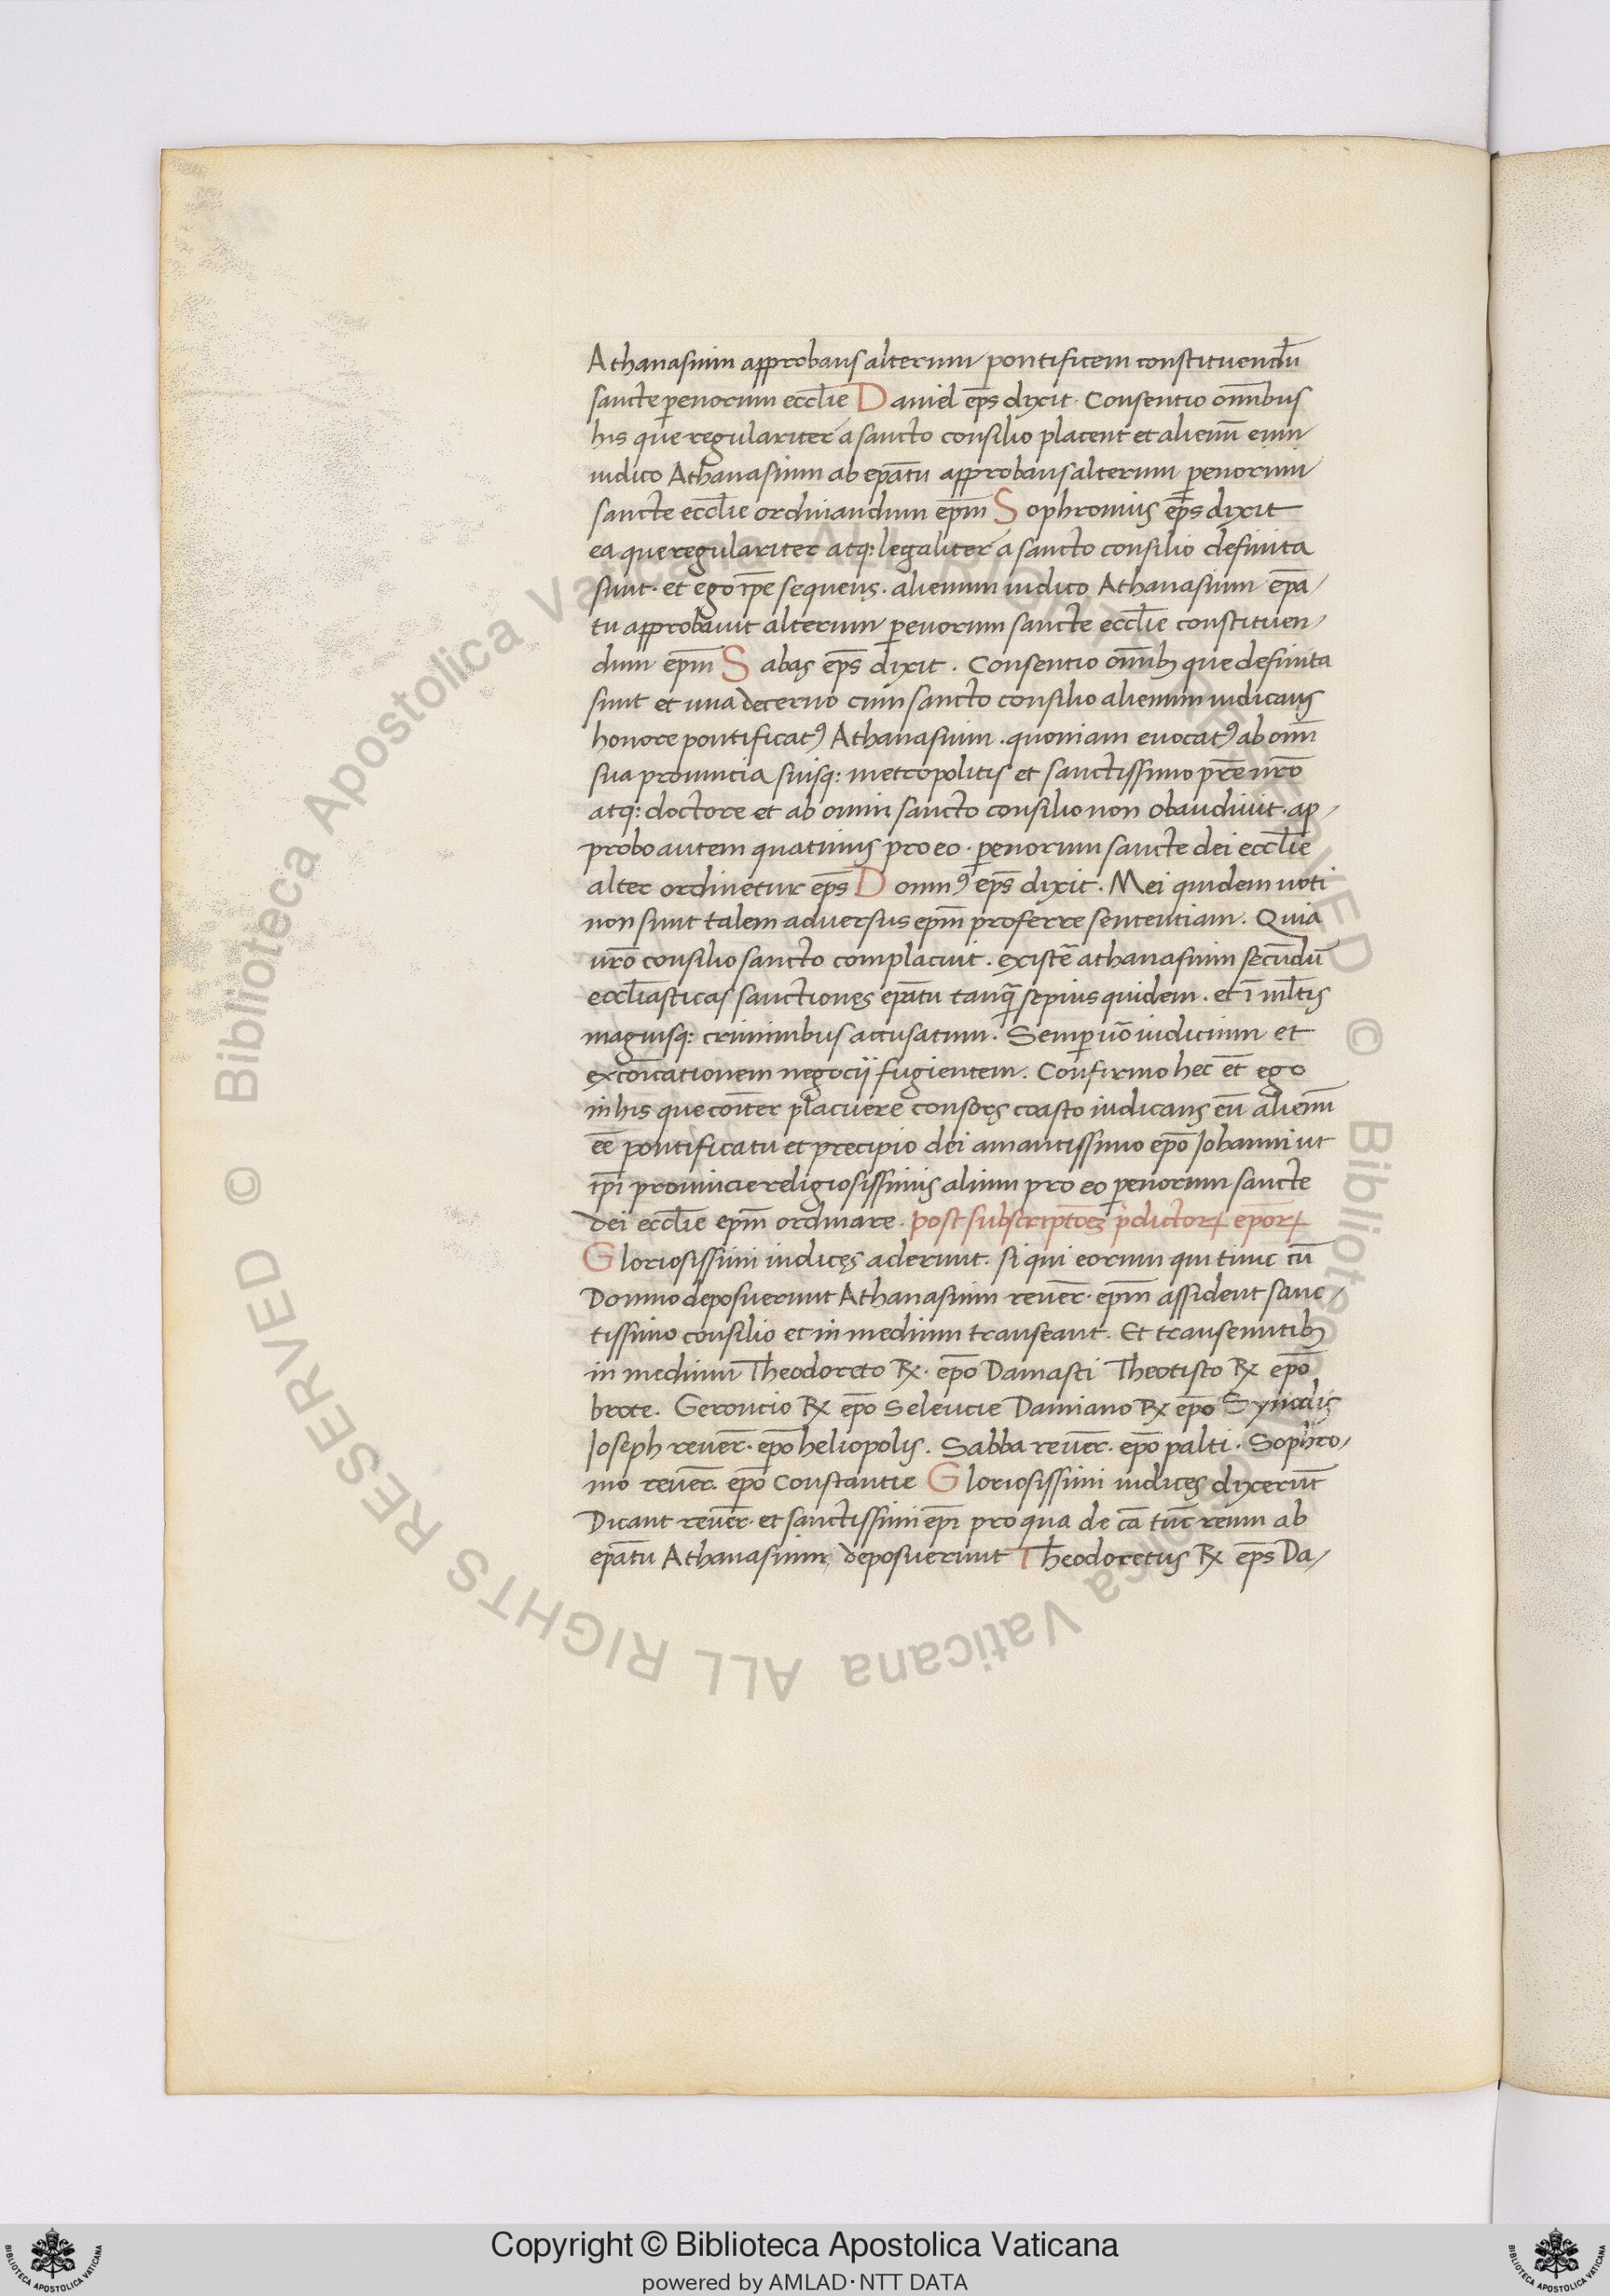 Athanasium approbans alterum pontificem constituendū
sancte perrenorum eccl̄ie Daniel ep̄s dixit. Consentio om̄ibus
his que regulariter a sancto consilio placent et alienū eum
iudico Athanasium ab ep̄atu approbans alterum perrenorum
sancte eccl̄ie ordinandum ep̄m Sophronius ep̄s dixit
ea que regulariter atq; legaliter a sancto consilio definita
sunt. et ego ip̄e sequens. alienum iudico Athanasium ep̄a/
tu approbavit alterum perrenorum sancte eccl̄ie constituen/
dum ep̄m Sabas ep̄s dixit. Consentio om̄ib; que definita
sunt et una decerno cum sancto consilio alienum iudicans
honore pontificatꝰ Athanasium. quoniam euocatꝰ ab om̄i
sua prouincia suisq; metropolitis et sanctissimo pr̄e nr̄o
atq; doctore et ab omni sancto consilio non obaudiuit. ap/
probo autem quatinus pro eo. perrenorum sancte dei eccl̄ie
alter ordinetur ep̄s Domnꝰ ep̄s dixit. Mei quidem uoti
non sunt talem adversus ep̄m proferre sententiam. Quia
ur̄o consilio sancto complacuit. existē athanasium secūdū
eccl̄iasticas sanctiones ep̄atu tanq̄ sepius quidem. et ī ml̄tis
magnisq; criminibus accusatum. Semper uō iudicium et
excōicationem negocij fugientem. Confirmo hec et̄ ego
in his que cōiter placuere consors coasto iudicans eū alienū
eē pontificatu et precipio dei amantissimo ep̄o Johanni ut
ip̄i prouincie religiosissimus alium pro eo perrenorum sancte
dei eccl̄ie ep̄m ordinare. post subscriptōes p̄dictorꝝ ep̄orꝝ
Gloriosissimi iudices aderunt. si qui eorum qui tunc cū
Domno deposuerunt Athanasium reuer̄. ep̄m assident sanc/
tissimo consilio et in medium transeant. Et transeuntib;
in medium Theodoreto R̄x. ep̄o Damasti Theotisto R̄x ep̄o
brote. Geroncio R̄x ep̄o Seleucie Damiano R̄x ep̄o Synodis
Joseph reuer̄. ep̄o heliopolis. Sabba reuer̄. ep̄o palti. Sophro/
nio reuer̄. ep̄o Constantie Gloriosissimi iudices dixerūt
Dicant reuer̄. et sanctissimi ep̄i pro qua de cā tūc reum ab
ep̄atu Athanasium, deposuerunt Theodoretus R̄x ep̄s Da/
Copyright © Biblioteca Apostolica Vaticana
powered by AMLAD·NTT DATA
© Biblioteca Apostolica Vaticana ALL RIGHTS RESERVED
© Biblioteca Apostolica Vaticana ALL RIGHTS RESERVED
BIBLIOTECA APOSTOLICA VATICANA
BIBLIOTECA APOSTOLICA VATICANA